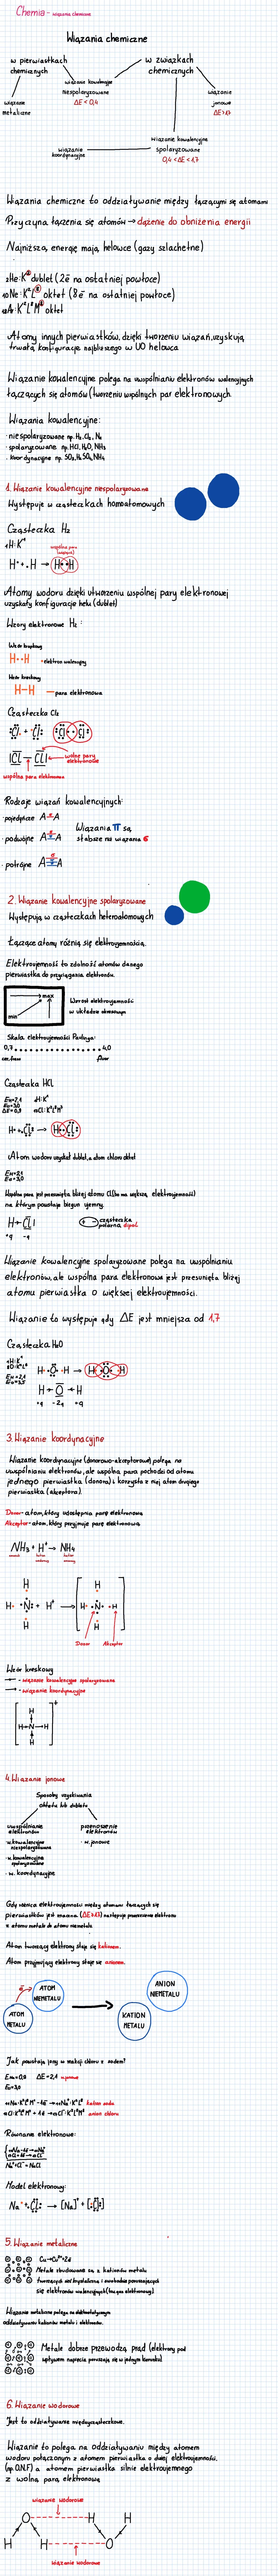 Chemia - wiązania chemiczne
Wiązania chemiczne
w pierwiastkach
chemicznych
w związkach
chemicznych
wiązanie kowalencyjne
niespolaryzowane
ΔE < 0,4
wiązanie
metaliczne
wiązanie
jonowe
ΔE>1,7
wiązanie
koordynacyjne
wiązanie kowalencyjne
spolaryzowane
0,4 <ΔE < 1,7
Wiązania chemiczne to oddziaływanie między łączącymi się atomami
Przyczyna łączenia się atomów → dążenie do obniżenia energii
Najniższą energię mają helowce (gazy szlachetne)
₂He: K² dublet (2e̅ na ostatniej powłoce)
₁₀Ne: K²L⁸ oktet (8e̅ na ostatniej powłoce)
₁₈Ar: K²L⁸M⁸ oktet
Atomy innych pierwiastków, dzięki tworzeniu wiązań, uzyskują
trwałą konfigurację najbliższego w UO helowca
Wiązanie kowalencyjne polega na uwspólnianiu elektronów walencyjnych
łączących się atomów (tworzeniu wspólnych par elektronowych)
Wiązania kowalencyjne:
· niespolaryzowane np. H₂, Cl₂, N₂
· spolaryzowane np. HCl, H₂O, NH₃
· koordynacyjne np.
1. Wiązanie kowalencyjne niespolaryzowane
Występuje w cząsteczkach homoatomowych
Cząsteczka H₂
₁H: K¹
wspólna para
(wiążąca)
H• + •H → H••H
Atomy wodoru dzięki utworzeniu wspólnej pary elektronowej
uzyskały konfigurację helu (dublet)
Wzory elektronowe H₂:
Wzór kropkowy
H••H • elektron walencyjny
Wzór kreskowy
H—H — para elektronowa
Cząsteczka Cl₂
:Cl. + .Cl: :Cl:Cl:
|Cl — Cl| wolne pary
elektronowe
wspólna para elektronowa
Rodzaje wiązań kowalencyjnych:
· pojedyncze A—A
· podwójne A=A
· potrójne A≡A
Wiązania π są
słabsze niż wiązania σ
2. Wiązanie kowalencyjne spolaryzowane
Występują w cząsteczkach heteroatomowych
Łączące atomy różnią się elektroujemnością.
Elektroujemność to zdolność atomów danego
pierwiastka do przyciągania elektronów.
max
min
Wzrost elektroujemności
w układzie okresowym
Skala elektroujemności Paulinga:
0,7 4,0
cez, frans fluor
Cząsteczka HCl
Eн=2,1 ₁H: K¹
Ecl=3,0
ΔE=0,9 ₁₇Cl: K²L⁸M⁷
H• + .Cl: → H:Cl:
Atom wodoru uzyskał dublet, a atom chloru oktet
Eн=2,1
Ecl=3,0
Wspólna para jest przesunięta bliżej atomu Cl (bo ma większą elektroujemność)
na którym powstaje biegun ujemny.
H→Cl|
+q -q
+ - cząsteczka
polarna dipol
Wiązanie kowalencyjne spolaryzowane polega na uwspólnianiu
elektronów, ale wspólna para elektronowa jest przesunięta bliżej
atomu pierwiastka o większej elektroujemności.
Wiązanie to występuje gdy ΔE jest mniejsza od 1,7
Cząsteczka H₂O
₁H: K¹
₈O: K²L⁶
Eн=2,1
Eo=3,5
H• •O• •H → H:O:H
H→O←H
+q -2q +q
3. Wiązanie koordynacyjne
Wiązanie koordynacyjne (donorowo-akceptorowe) polega na
uwspólnianiu elektronów, ale wspólna para pochodzi od atomu
jednego pierwiastka (donora) i korzysta z niej atom drugiego
pierwiastka (akceptora).
Donor - atom, który udostępnia parę elektronową
Akceptor - atom, który przyjmuje parę elektronową
NH₃ + H⁺ → NH₄
amoniak kation
wodorowy kation
amonowy
H
H• •N: + H⁺ → H• •N• •H
H
Donor Akceptor
Wzór kreskowy
→ - wiązanie kowalencyjne spolaryzowane
→ - wiązanie koordynacyjne
H
H→N→H
H
+
4. Wiązanie jonowe
Sposoby uzyskiwania
oktetu lub dubletu
uwspólnianie
elektronów
przenoszenie
elektronów
· w. kowalencyjne
niespolaryzowane
· w. kowalencyjne
spolaryzowane
· w. koordynacyjne
· w. jonowe
Gdy różnica elektroujemności między atomami łączących się
pierwiastków jest znaczna (ΔE≥1,7) następuje przeniesienie elektronu
z atomu metalu do atomu niemetalu.
Atom tworzący elektrony staje się kationem.
Atom przyjmujący elektrony staje się anionem.
e̅
ATOM
METALU
ATOM
NIEMETALU
KATION
METALU
ANION
NIEMETALU
Jak powstają jony w reakcji chloru z sodem?
Ena=0,9 ΔE=2,1 w. jonowe
Ecl=3,0
₁₁Na: K²L⁸M¹ -1e̅ → ₁₁Na⁺: K²L⁸ kation sodu
₁₇Cl: K²L⁸M⁷ + 1e̅ → ₁₇Cl⁻: K²L⁸M⁸ anion chloru
Równanie elektronowe:
Na⁺ + Cl⁻ → NaCl
Model elektronowy:
Na• + .Cl: → [Na]⁺ + [:Cl:]⁻
5. Wiązanie metaliczne
Metale zbudowane są z kationów metalu
tworzących sieć krystaliczną i swobodnie poruszających
się elektronów walencyjnych (tzw. gaz elektronowy)
Wiązanie metaliczne polega na elektrostatycznym
oddziaływaniu kationów metalu i elektronów.
Metale dobrze przewodzą prąd (elektrony pod
wpływem napięcia poruszają się w jednym kierunku)
6. Wiązanie wodorowe
Jest to oddziaływanie międzycząsteczkowe.
Wiązanie to polega na oddziaływaniu między atomem
wodoru połączonym z atomem pierwiastka o dużej elektroujemności,
(np. O,N,F) a atomem pierwiastka silnie elektroujemnego
z wolną parą elektronową
wiązanie wodorowe
O H H
H H O
wiązanie wodorowe